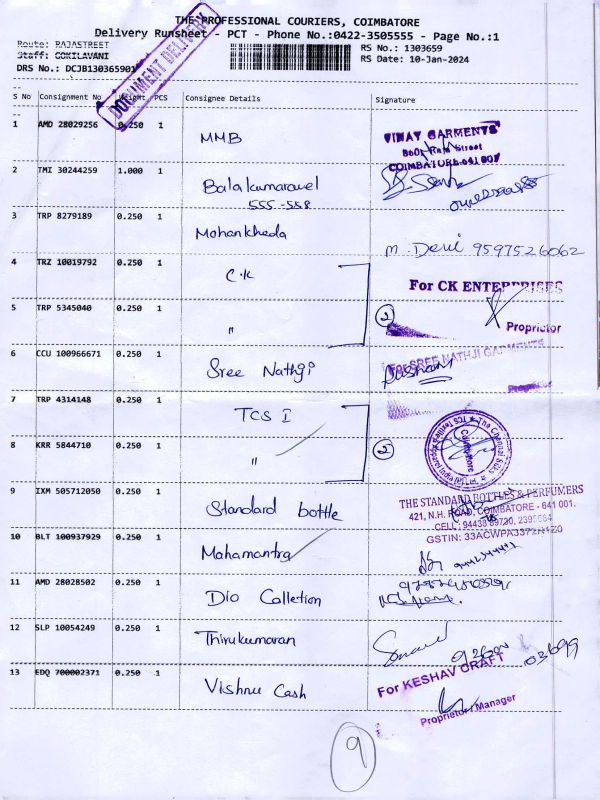 THE PROFESSIONAL COURIERS, COIMBATORE
Delivery Runsheet - PCT - Phone No.:0422-3505555 - Page No.:1
Route: RAJASTREET
Staff: GOKILAVANI
DRS No.: DCJB130365901
RS No.: 1303659
RS Date: 10-Jan-2024
DOCUMENT DELIVERY
S No Consignment No Weight PCS Consignee Details Signature
1 AMD 28029256 0.250 1 MMB
VINAY GARMENTS
Raja Street
COIMBATORE-641 001
2 TMI 30244259 1.000 1 Balakumaravel
555-558
3 TRP 8279189 0.250 1 Mohankheda
M. Devi 9597526062
4 TRZ 10019792 0.250 1 C.K
For CK ENTERPRISES
2
Proprietor
5 TRP 5345040 0.250 1 "
6 CCU 100966671 0.250 1 Sree Nathji
For SREE NATHJI GARMENTS
7 TRP 4314148 0.250 1 TCS I
2
Coimbatore
8 KRR 5844710 0.250 1 "
9 IXM 505712050 0.250 1 Standard bottle
THE STANDARD BOTTLES & PERFUMERS
421, N.H. ROAD, COIMBATORE - 641 001.
CELL: 94438 89730,
GSTIN:
10 BLT 100937929 0.250 1 Mahamantra
11 AMD 28028502 0.250 1 Dio Calletion
12 SLP 10054249 0.250 1 Thirukumaran
13 EDQ 700002371 0.250 1 Vishnu Cash
For KESHAV CRAFT
Proprietor / Manager
9